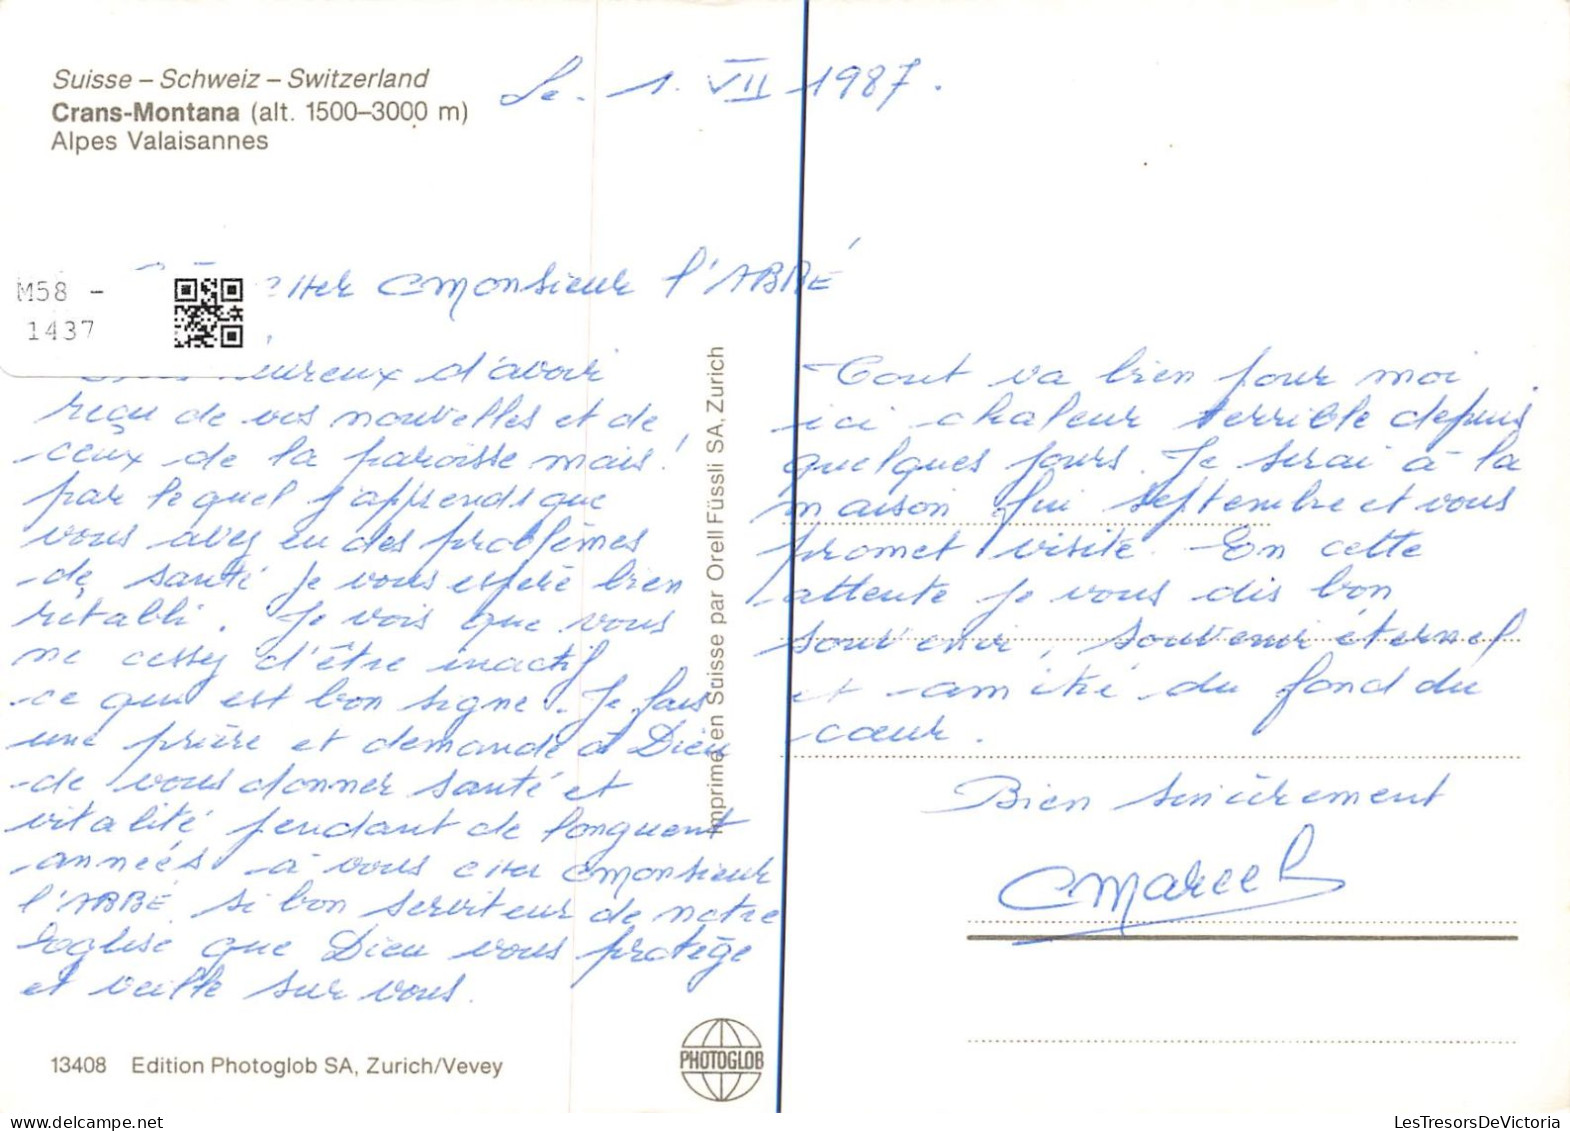 Suisse – Schweiz – Switzerland
Crans-Montana (alt. 1500–3000 m)
Alpes Valaisannes
Le. 1. VII 1987.
M58 -
1437
cher Monsieur l'ABBÉ
heureux d'avoir
reçu de vos nouvelles et de
ceux de la paroisse mais !
par lequel j'apprends que
vous avez eu des problèmes
de santé je vous espère bien
rétabli. Je vois que vous
ne cessez d'être inactif
ce qui est bon signe. Je fais
une prière et demande à Dieu
de vous donner santé et
vitalité pendant de longuent
années à vous cher Monsieur
l'ABBÉ si bon serviteur de notre
Eglise que Dieu vous protège
et veille sur vous.
Tout va bien pour moi
ici chaleur terrible depuis
quelques jours. Je serai à la
maison fui septembre et vous
promet visite. En cette
attente je vous dis bon
souvenir, souvenir éternel
et amitié du fond du
cœur.
Bien sincèrement
Marcel
Imprimé en Suisse par Orell Füssli SA, Zurich
13408 Edition Photoglob SA, Zurich/Vevey
PHOTOGLOB
LesTresorsDeVictoria